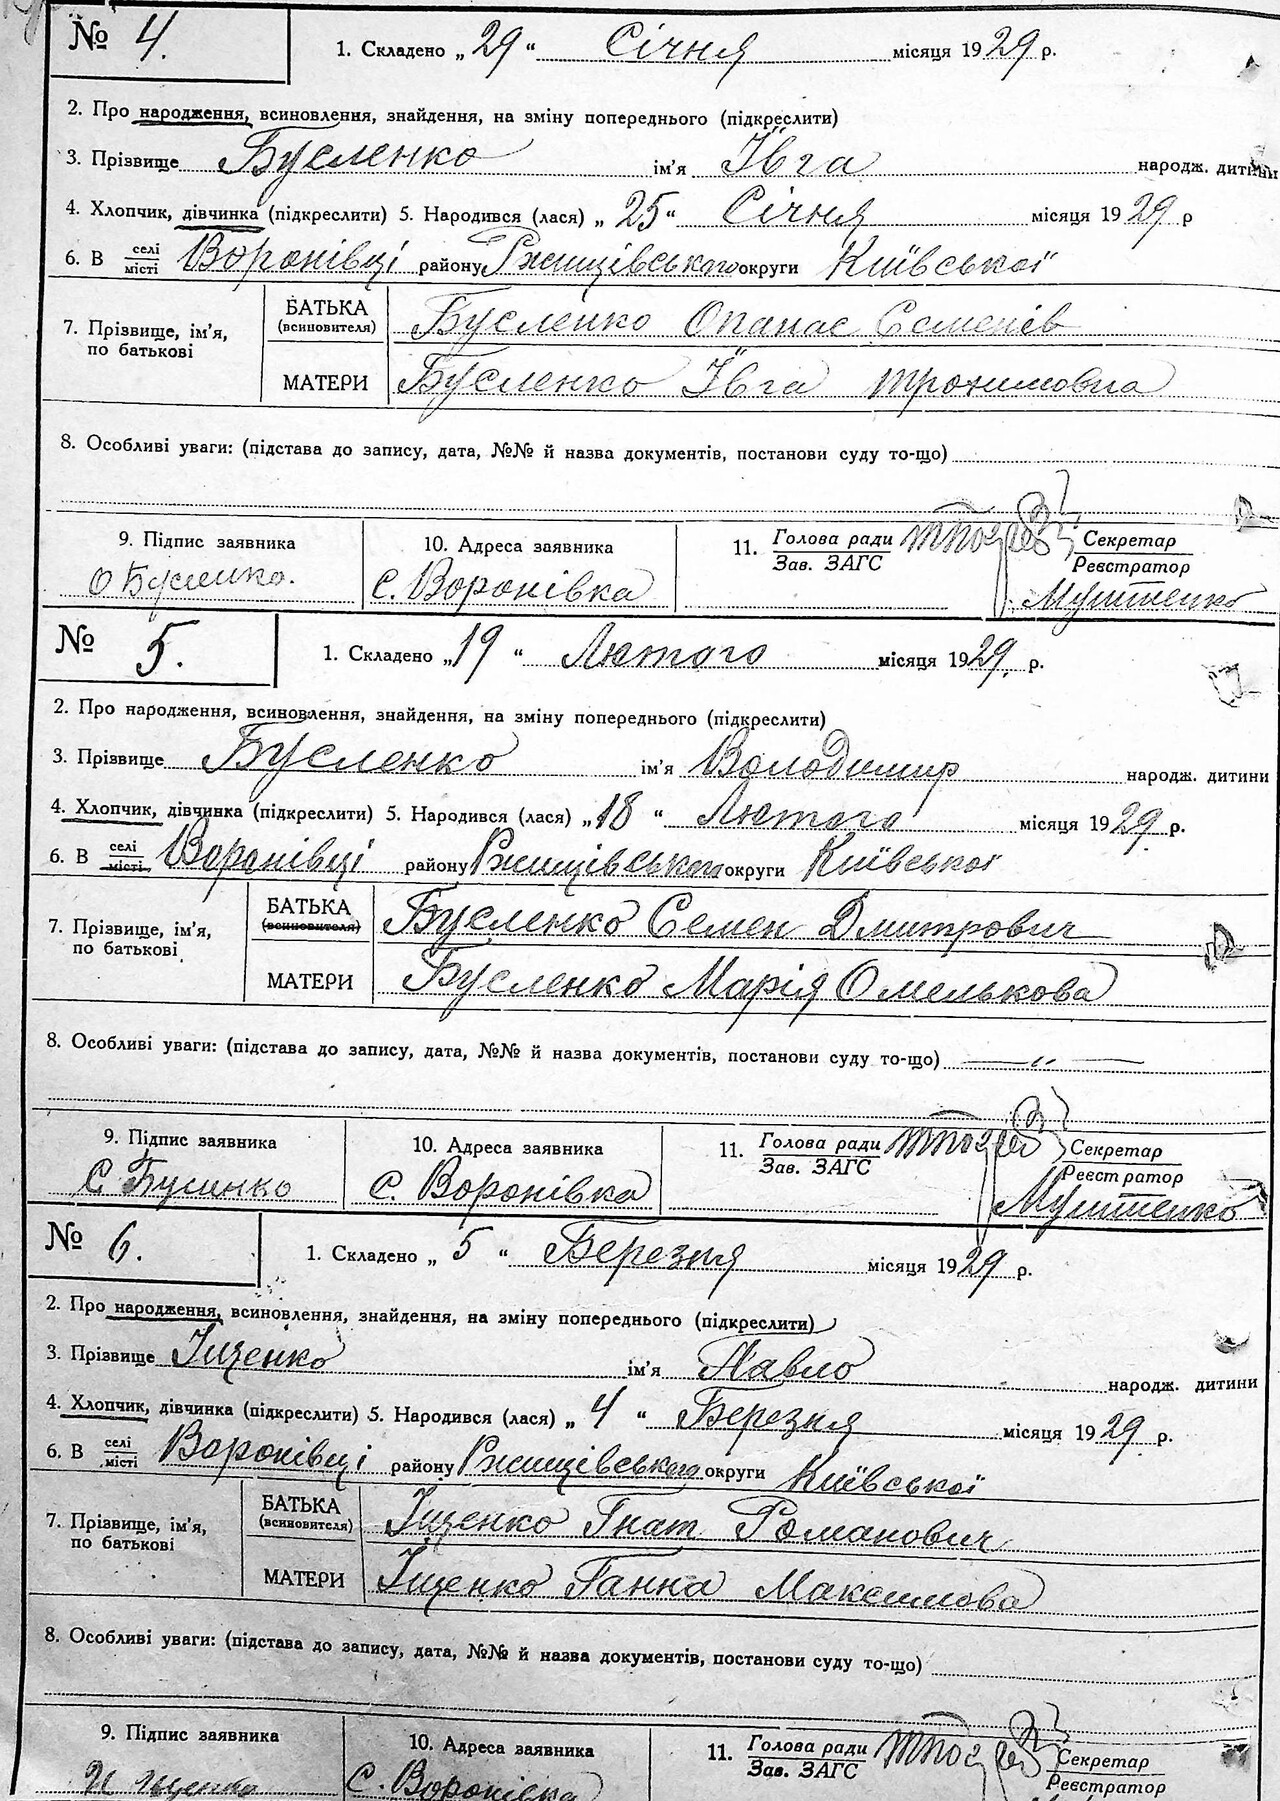 № 4. 1. Складено „29“ Січня місяця 1929 р.
2. Про народження, всиновлення, знайдення, на зміну попереднього (підкреслити)
3. Прізвище Бусленко ім'я Ївга народж. дитини
4. Хлопчик, дівчинка (підкреслити) 5. Народився (лася) „25“ Січня місяця 1929 р
6. В селі місті Воронівці району Ржищівського округи Київської
7. Прізвище, ім'я, по батькові БАТЬКА (всиновителя) Бусленко Опанас Семенів
МАТЕРИ Бусленко Ївга Трохимовна
8. Особливі уваги: (підстава до запису, дата, №№ й назва документів, постанови суду то-що)
9. Підпис заявника 10. Адреса заявника 11. Голова ради Зав. ЗАГС Секретар Реєстратор
О Бусленко. с. Воронівка
№ 5. 1. Складено „19“ Лютого місяця 1929 р.
2. Про народження, всиновлення, знайдення, на зміну попереднього (підкреслити)
3. Прізвище Бусленко ім'я Володимир народж. дитини
4. Хлопчик, дівчинка (підкреслити) 5. Народився (лася) „18“ Лютого місяця 1929 р.
6. В селі місті Воронівці району Ржищівського округи Київської
7. Прізвище, ім'я, по батькові БАТЬКА (всиновителя) Бусленко Семен Дмитрович
МАТЕРИ Бусленко Марія Омелькова
8. Особливі уваги: (підстава до запису, дата, №№ й назва документів, постанови суду то-що) — „ —
9. Підпис заявника 10. Адреса заявника 11. Голова ради Зав. ЗАГС Секретар Реєстратор
С. Бусленко с. Воронівка
№ 6. 1. Складено „5“ Березня місяця 1929 р.
2. Про народження, всиновлення, знайдення, на зміну попереднього (підкреслити)
3. Прізвище Іщенко ім'я Павло народж. дитини
4. Хлопчик, дівчинка (підкреслити) 5. Народився (лася) „4“ Березня місяця 1929 р.
6. В селі місті Воронівці району Ржищівського округи Київської
7. Прізвище, ім'я, по батькові БАТЬКА (всиновителя) Іщенко Гнат Романович
МАТЕРИ Іщенко Ганна Максимова
8. Особливі уваги: (підстава до запису, дата, №№ й назва документів, постанови суду то-що)
9. Підпис заявника 10. Адреса заявника 11. Голова ради Зав. ЗАГС Секретар Реєстратор
Іщенко с. Воронівка